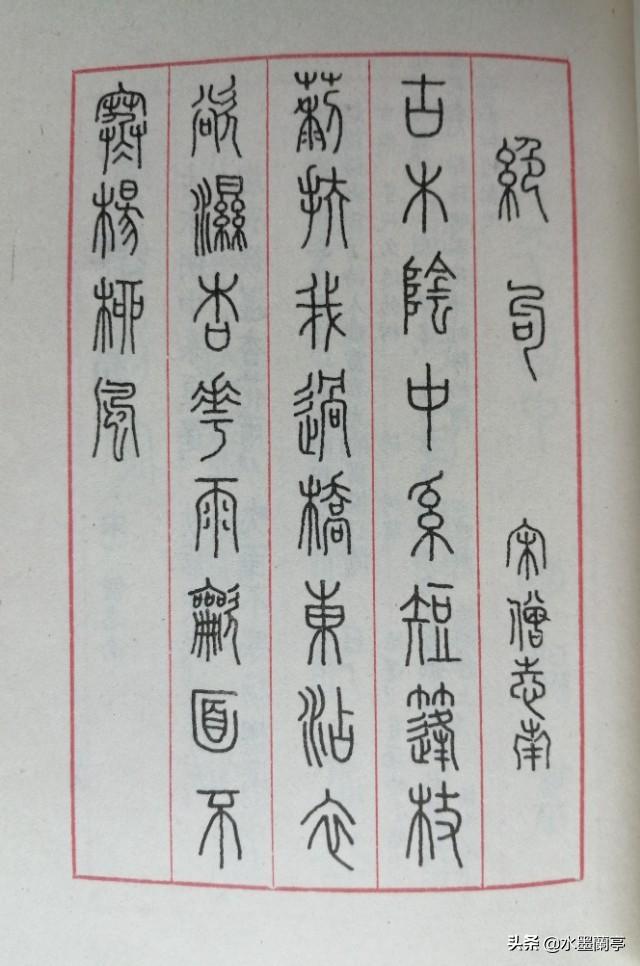 絕句 宋僧志南
古木陰中系短篷杖
藜扶我過橋東沾衣
欲濕杏花雨龡面不
寒楊柳風
头条 @水墨蘭亭